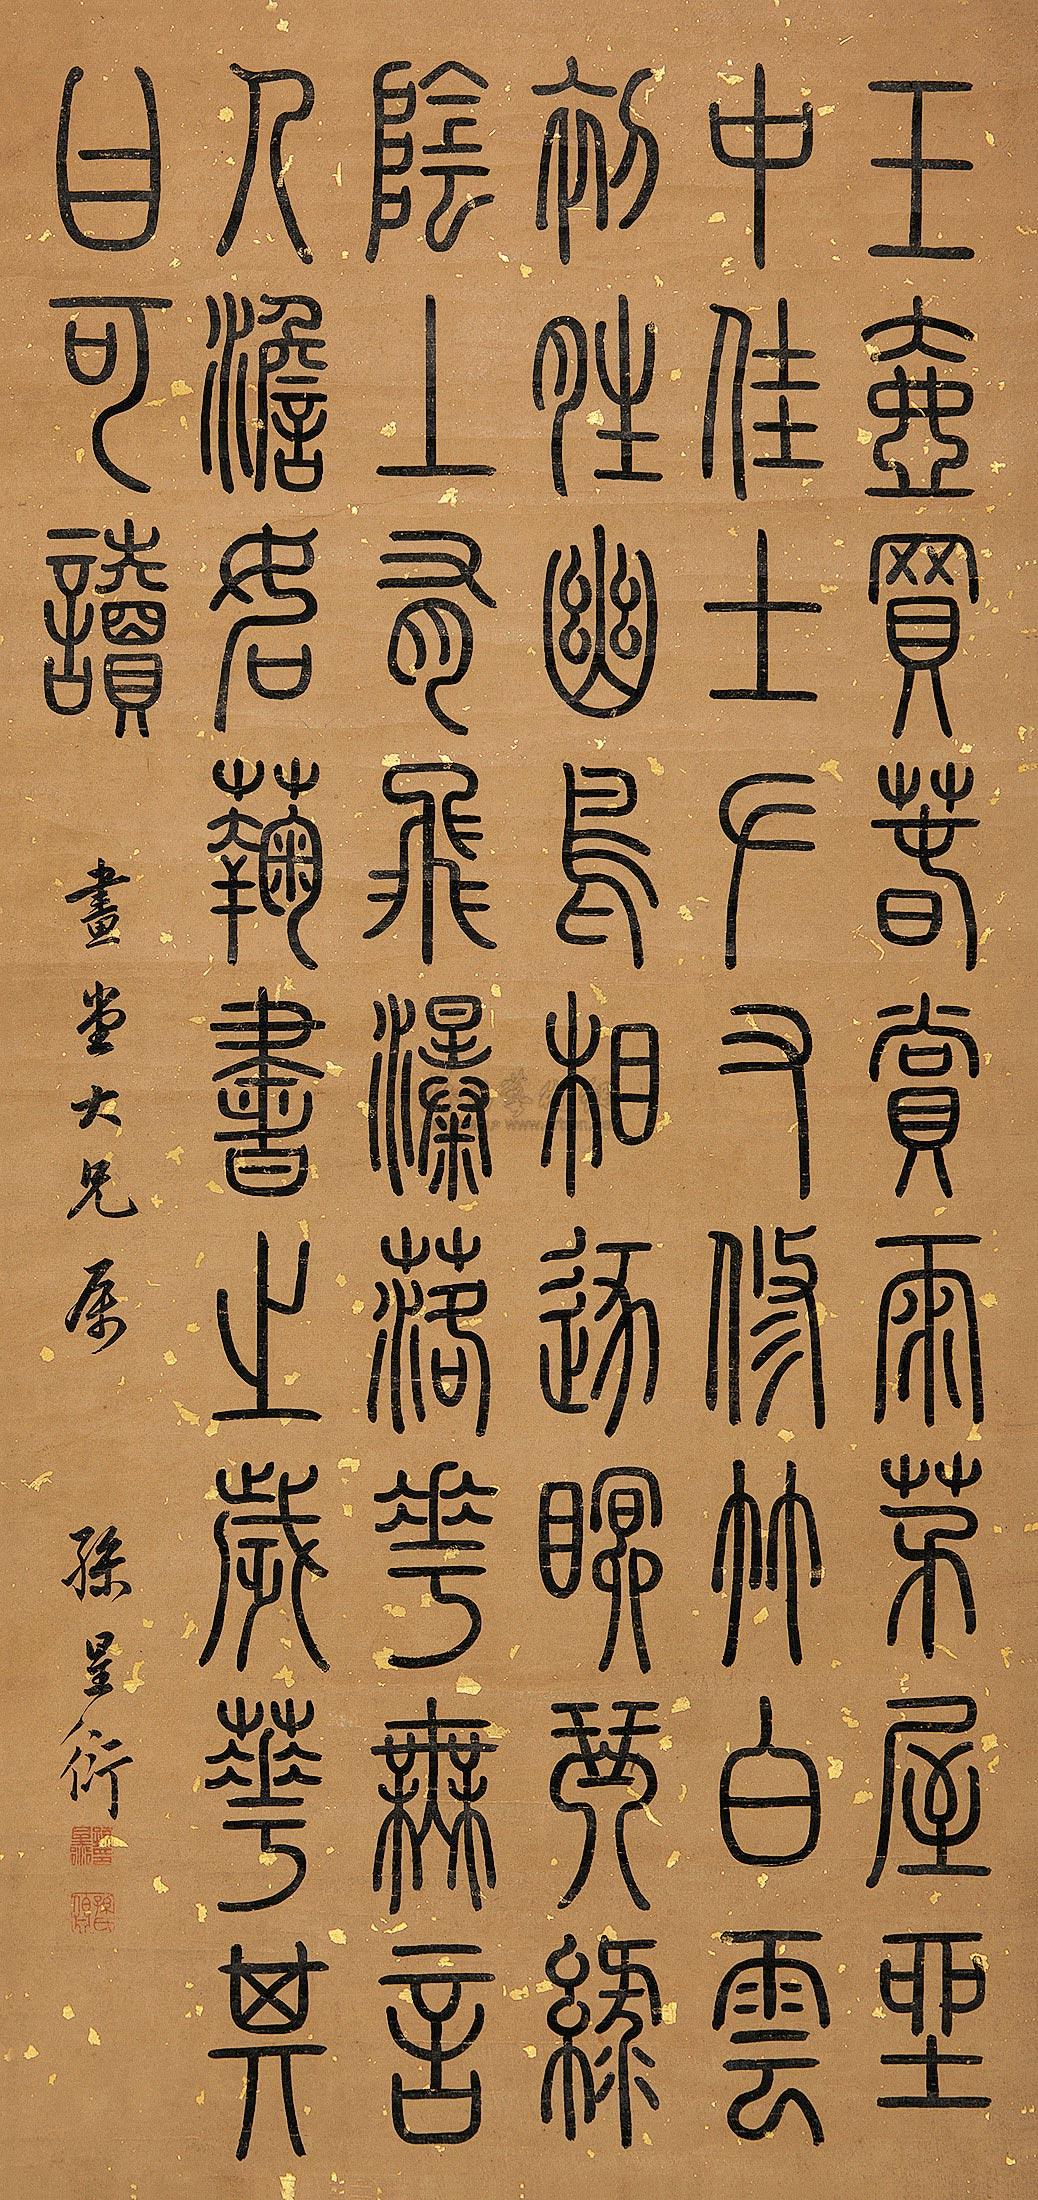 玉壺買春賞雨茅屋坐
中佳士左右修竹白雲
初晴幽鳥相逐眠琴綠
陰上有飛瀑落華無言
人澹如菊書之歲華其
曰可讀
畫堂大兄屬
孫星衍